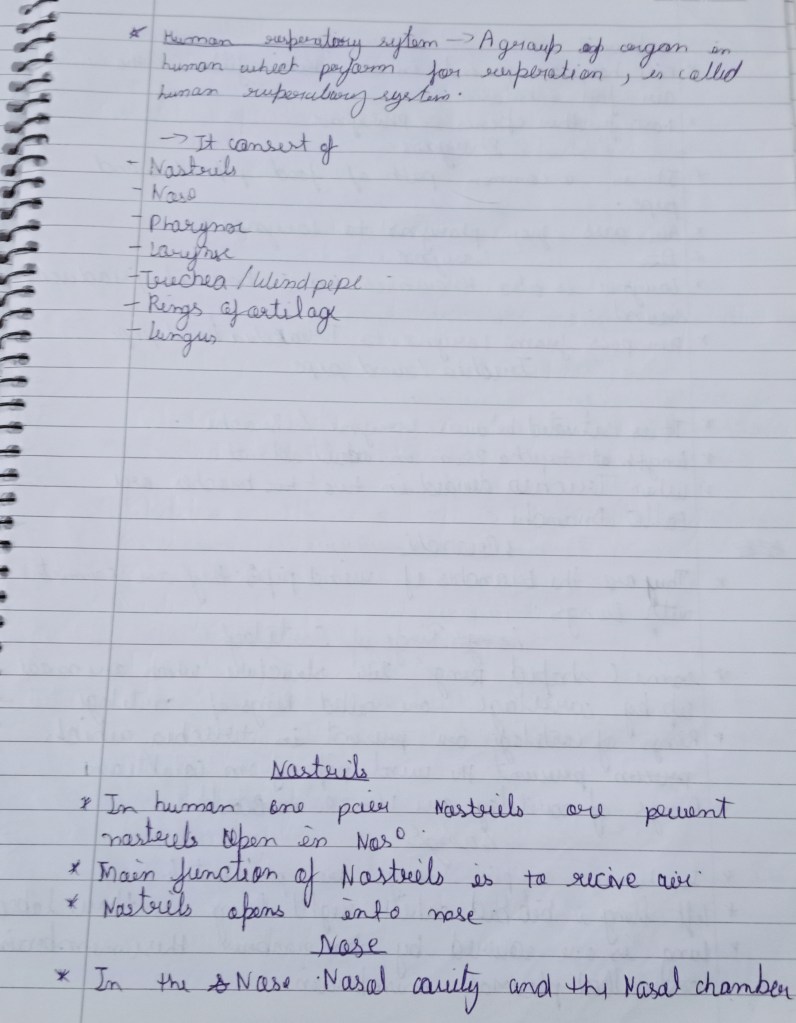 * Human resperatory sytem → A group of organ in
human whect perform for resperation, is called
human resperatory system.
→ It consert of
- Nastrils
- Nase
- Pharynx
- Larynx
- Trechea / Wind pipe
- Rings of artilage
- lungus
Nastrils
* In human one pair Nastrils are present
nastrels open in Nose.
* Main function of Nastrils is to recive air.
* Nastrils opens into nose
Nose
* In the Nose Nasal cavity and the Nasal chamber